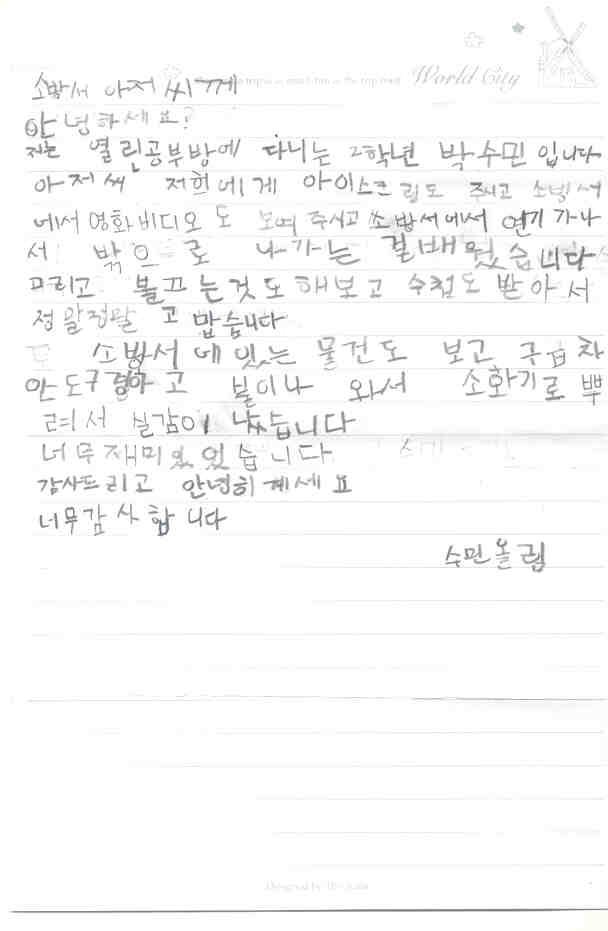 World City
소방서 아저씨께
안녕하세요?
저는 열린공부방에 다니는 2학년 박수민입니다
아저씨 저희에게 아이스크림도 주시고 소방서
에서 영화비디오도 보여주시고 소방서에서 연기가나
서 밖으로 나가는 걸배웠습니다
그리고 불끄는것도해보고 수첩도 받아서
정말정말 고맙습니다
또 소방서에있는 물건도 보고 구급차
안도구경하고 불이나 와서 소화기로 뿌
려서 실감이 났습니다
너무재미있있습니다
감사드리고 안녕히계세요
너무감사합니다
수민올림